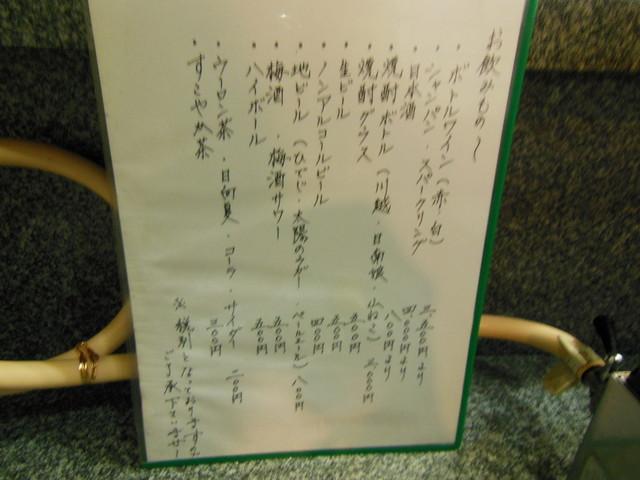 お飲みもの〜
・ボトルワイン（赤・白） 三、五〇〇円より
・シャンパン・スパークリング 四、〇〇〇円より
・日本酒 八〇〇円より
・焼酎ボトル（川越・日南娘・山ねこ） 三、〇〇〇円
・焼酎グラス 五〇〇円
・生ビール 五〇〇円
・ノンアルコールビール 四〇〇円
・地ビール（ひでじ・太陽のラガー・ペールエール） 八〇〇円
・梅酒・梅酒サワー 五〇〇円
・ハイボール 五〇〇円
・ウーロン茶・日向夏・コーラ・サイダー 三〇〇円
・すこやか茶 三〇〇円
※税別となっておりますので
ご了承下さいませ〜